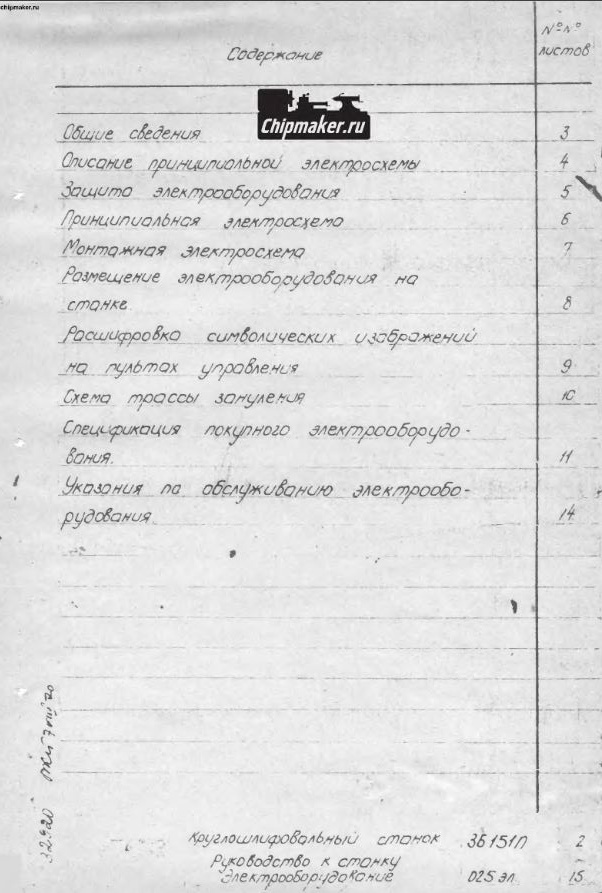 chipmaker.ru
№ №
Содержание листов
Chipmaker.ru
Общие сведения 3
Описание принципиальной электросхемы 4
Защита электрооборудования 5
Принципиальная электросхема 6
Монтажная электросхема 7
Размещение электрооборудования на
станке 8
Расшифровка символических изображений
на пультах управления 9
Схема трассы зануления 10
Спецификация покупного электрооборудо-
вания. 11
Указания по обслуживанию электрообо-
рудования 14
Круглошлифовальный станок 3Б151П 2
Руководство к станку
Электрооборудование 025 эл. 15